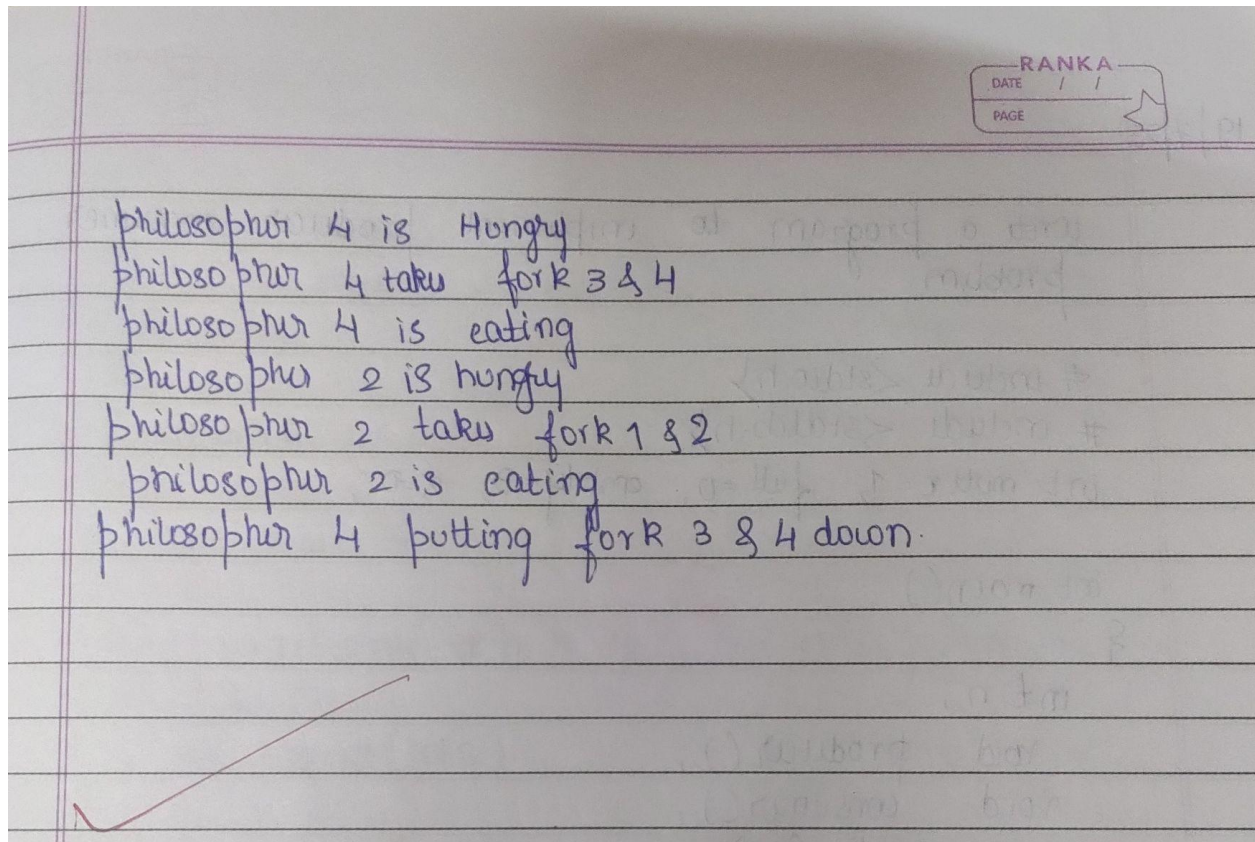 RANKA
DATE / /
PAGE
philosopher 4 is Hungry
philosopher 4 takes fork 3 & 4
philosopher 4 is eating
philosopher 2 is hungry
philosopher 2 takes fork 1 & 2
philosopher 2 is eating
philosopher 4 putting fork 3 & 4 down.